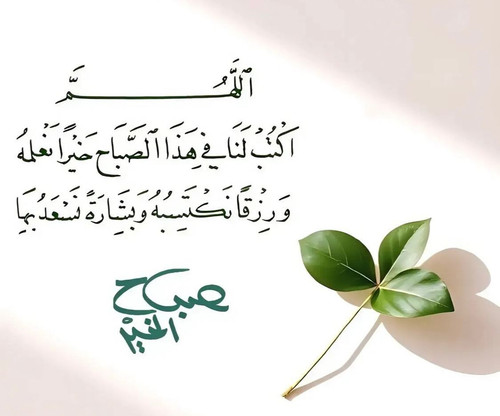 اَللَّهُـــمَّ
اَكْتُبْ لَنَا فِي هَذَا اَلصَّبَاحِ خَيْرًا نَعْلَمُهُ
وَرِزْقًا نَكْتَسِبُهُ وَبِشَارَةً نَسْعَدُ بِهَا
صباح
الخير